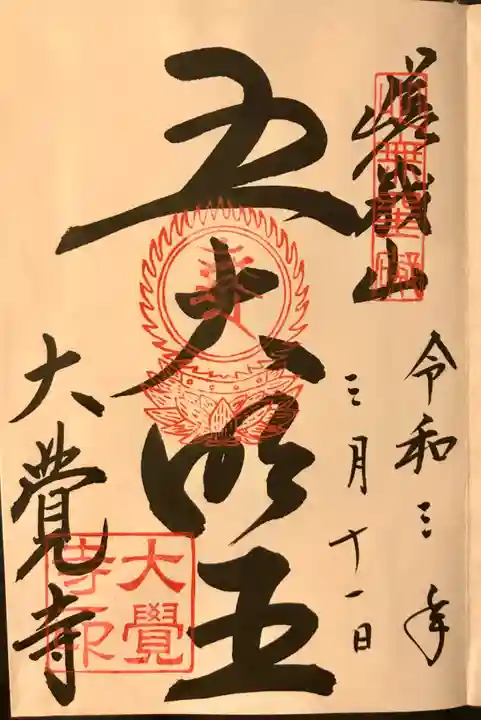 嵯峨山
令和三年
三月十一日
五大明王
大覺寺
大覺
寺印